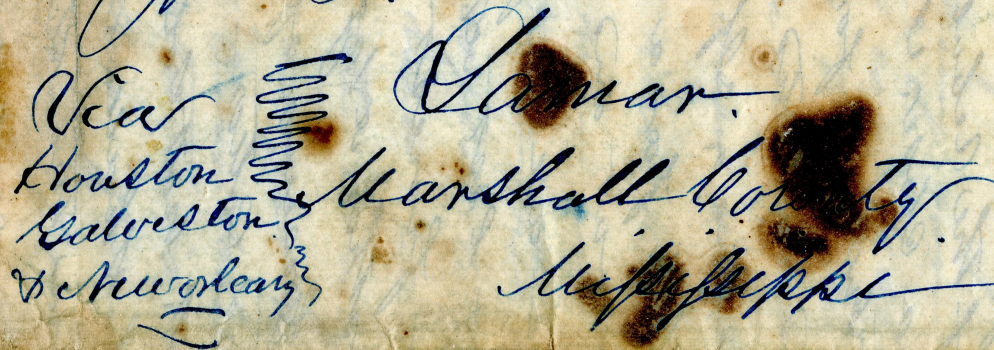 Via
Houston
Galveston
& New orleans
Lamar.
Marshall County.
Mississippi